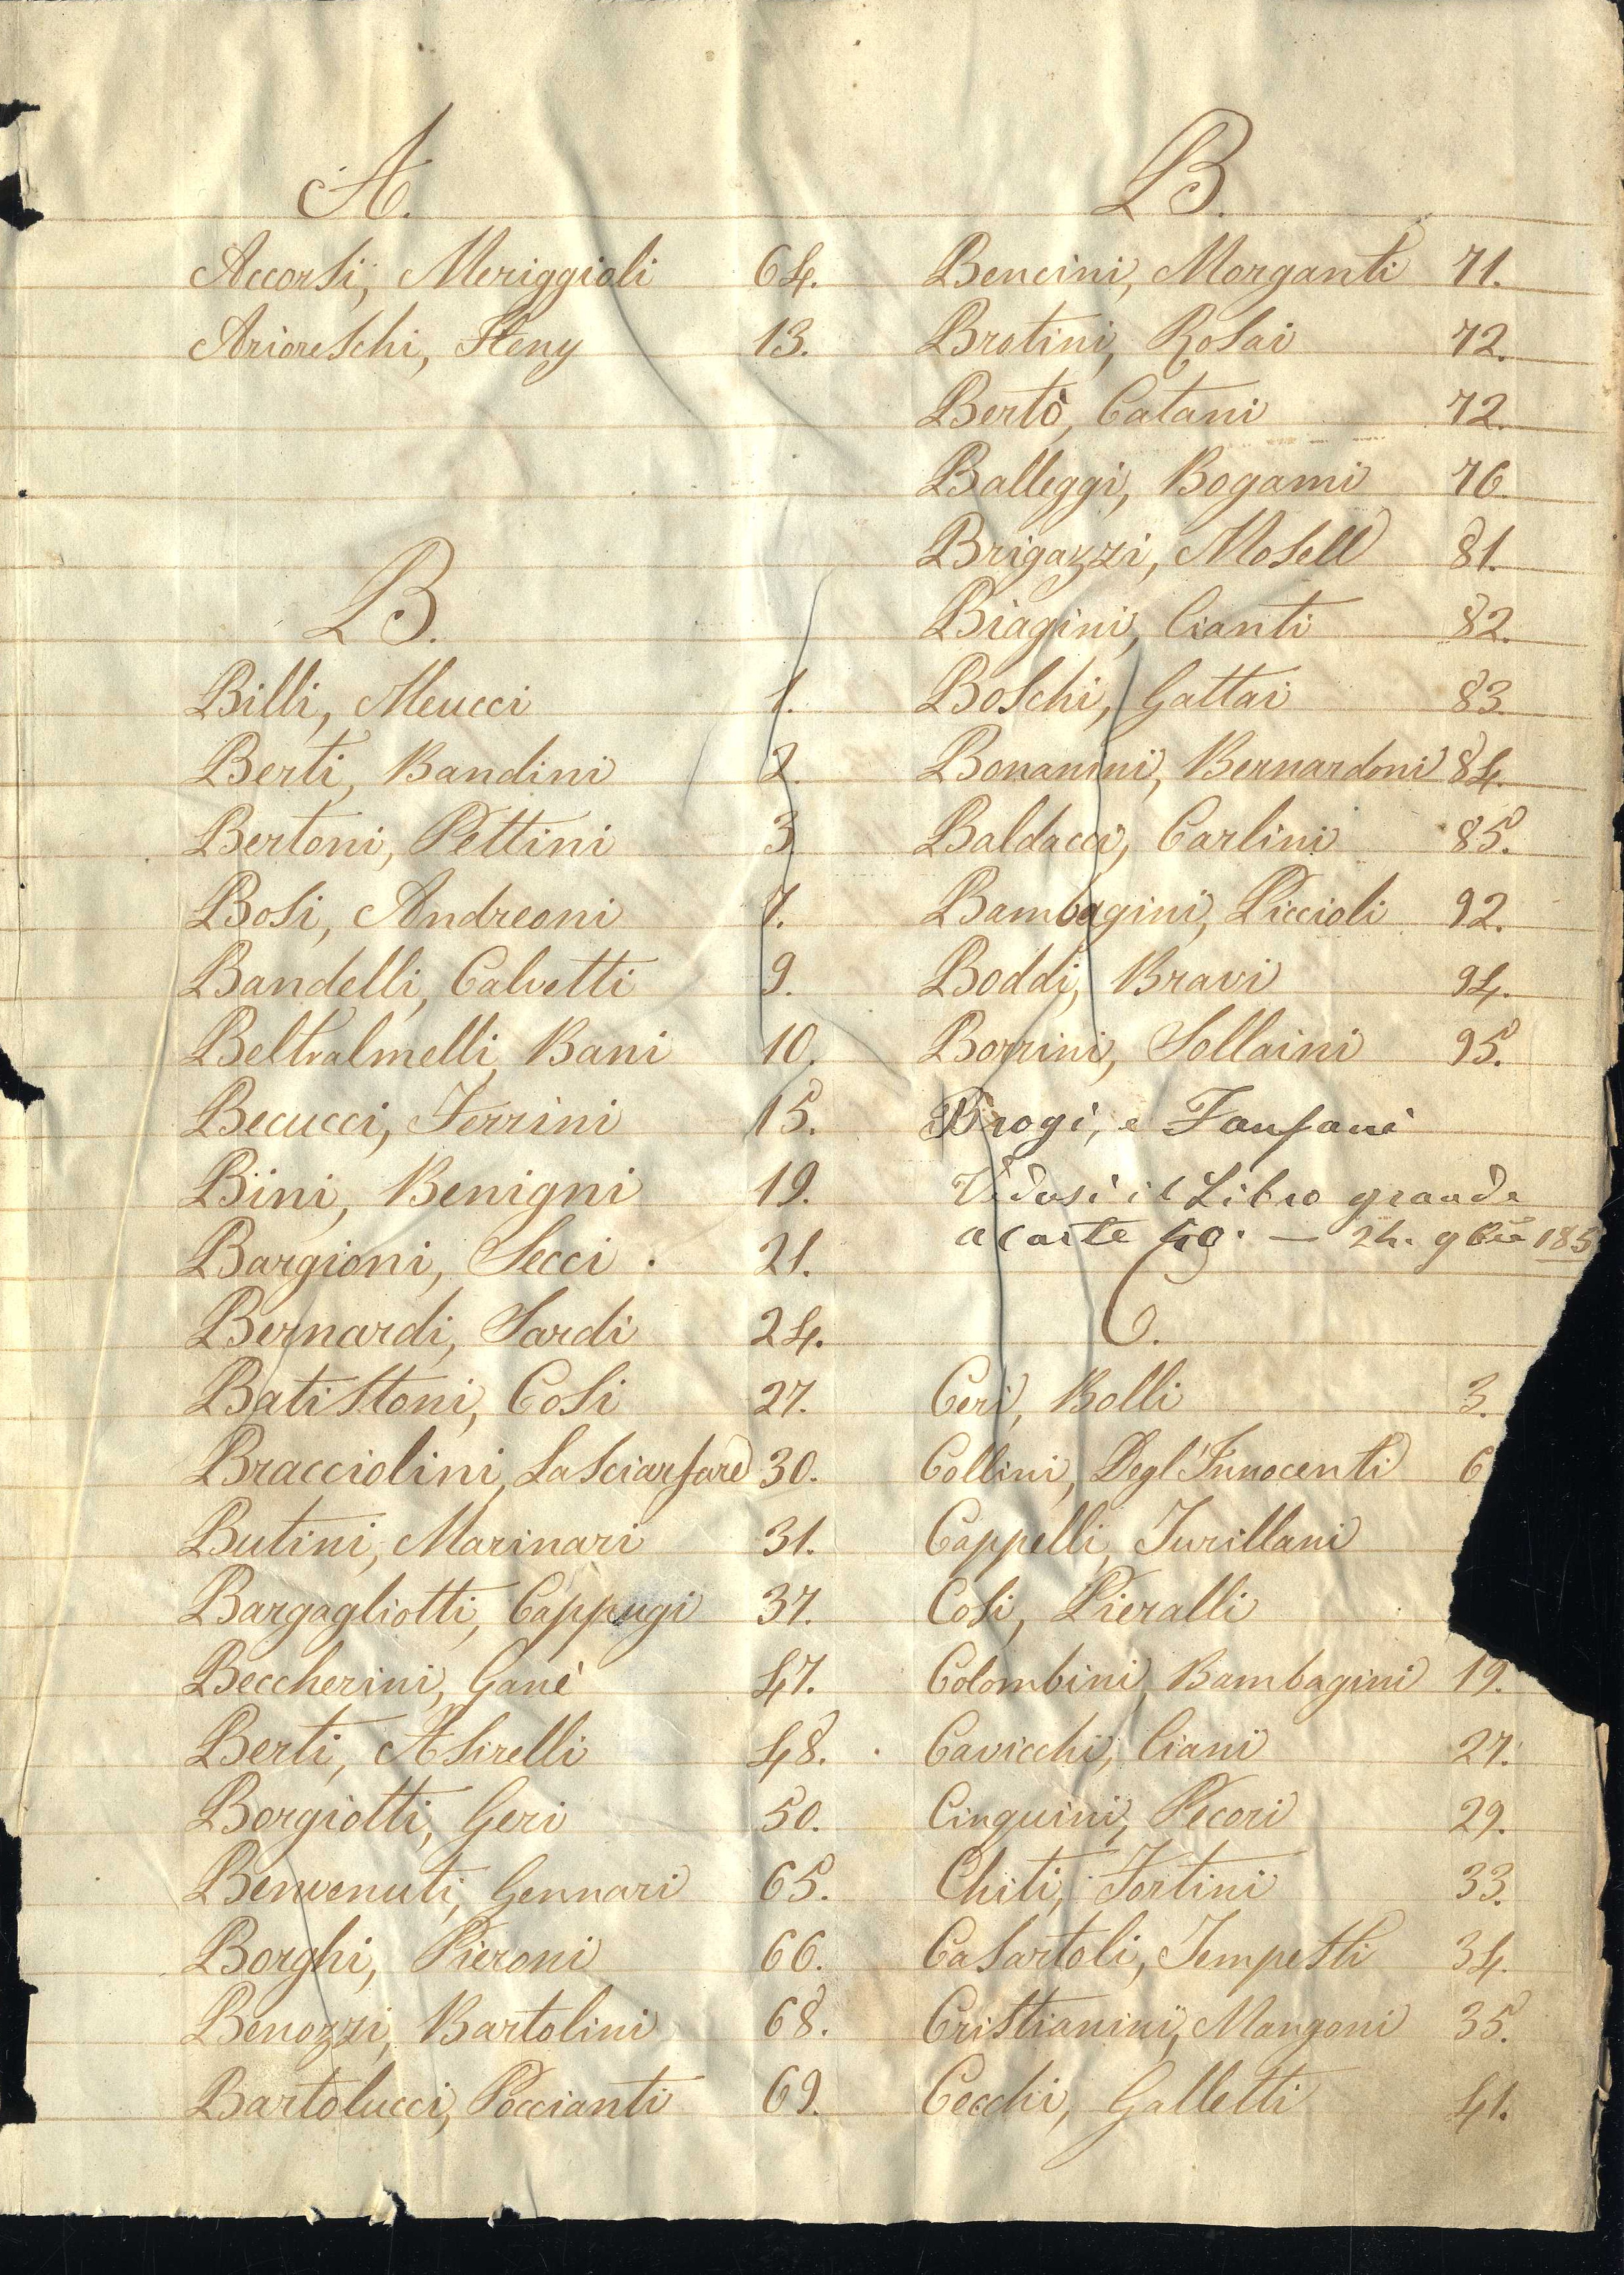 A.
Accorsi, Meriggioli 64.
Arioreschi, Steny 13.
B.
Billi, Meucci 1.
Berti, Bandini 2.
Bertoni, Pettini 3.
Bosi, Andreoni 7.
Bandelli, Calvetti 9.
Beltralmelli, Bani 10.
Becucci, Ferrini 15.
Bini, Benigni 19.
Bargioni, Secci 21.
Bernardi, Sardi 24.
Batistoni, Cosi 27.
Bracciolini, Lasciarfare 30.
Butini, Marinari 31.
Bargagliotti, Cappugi 37.
Beccherini, Ganè 47.
Berti, Asirelli 48.
Borgiotti, Geri 50.
Benvenuti, Gennari 65.
Borghi, Pieroni 66.
Benozzi, Bartolini 68.
Bartolucci, Poccianti 69.
B.
Bencini, Morganti 71.
Brotini, Rosai 72.
Bertò, Catani 72.
Balleggi, Bogami 76.
Brigazzi, Mosell 81.
Biagini, Cianti 82.
Boschi, Gattai 83.
Bonanini, Bernardoni 84.
Baldacci, Carlini 85.
Bambagini, Piccioli 92.
Boddi, Bravi 94.
Borrini, Sollaini 95.
Brogi, e Fanfani
Vedasi il Libro grande
a Carte 50. — 24. 9bre 185
C.
Ceri, Bolli 3.
Collini, Degl'Innocenti 6
Cappelli, Turillani
Cosi, Pieralli
Colombini, Bambagini 19.
Cavicchi, Ciani 27.
Cinquini, Pecori 29.
Chiti, Fortini 33.
Casartoli, Tempesti 34.
Cristianini, Mangoni 35.
Cecchi, Galletti 41.